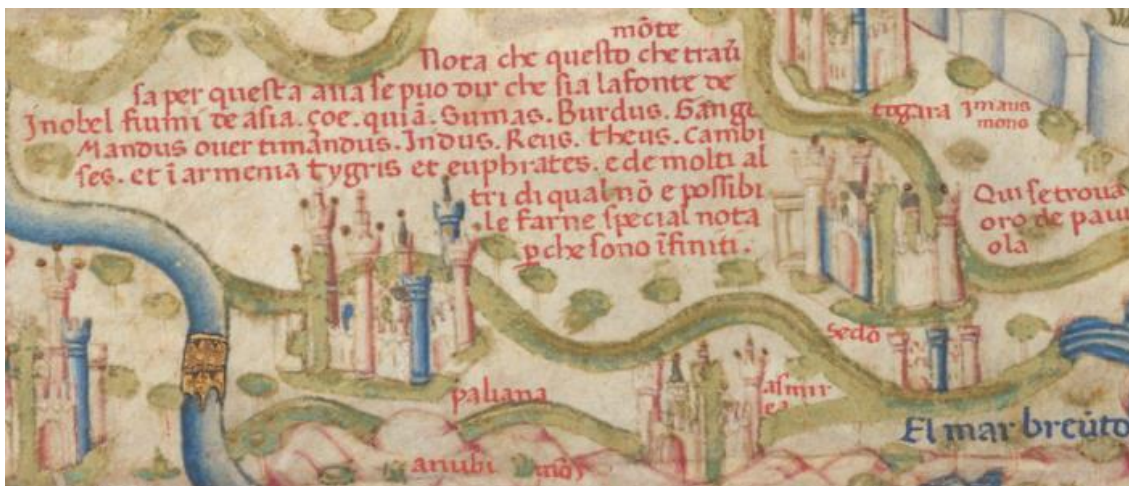 mōte
Nota che questo che traū
sa per questa aua se puo dir che sia lafonte de
Jnobel fiumi de asia. çoe. quiā. Sumas. Burdus. Gange
Mandus ouer timandus. Jndus. Reus. theus. Cambi
ses. et ī armenia tygris et euphrates. e de molti al
tri di qual nō e possibi
le farne special nota
pche sono īfiniti.
togara
mons
Qui se troua
oro de paui
ola
sedō
paliana
asmir
ea
El mar breūto
anubi mōs